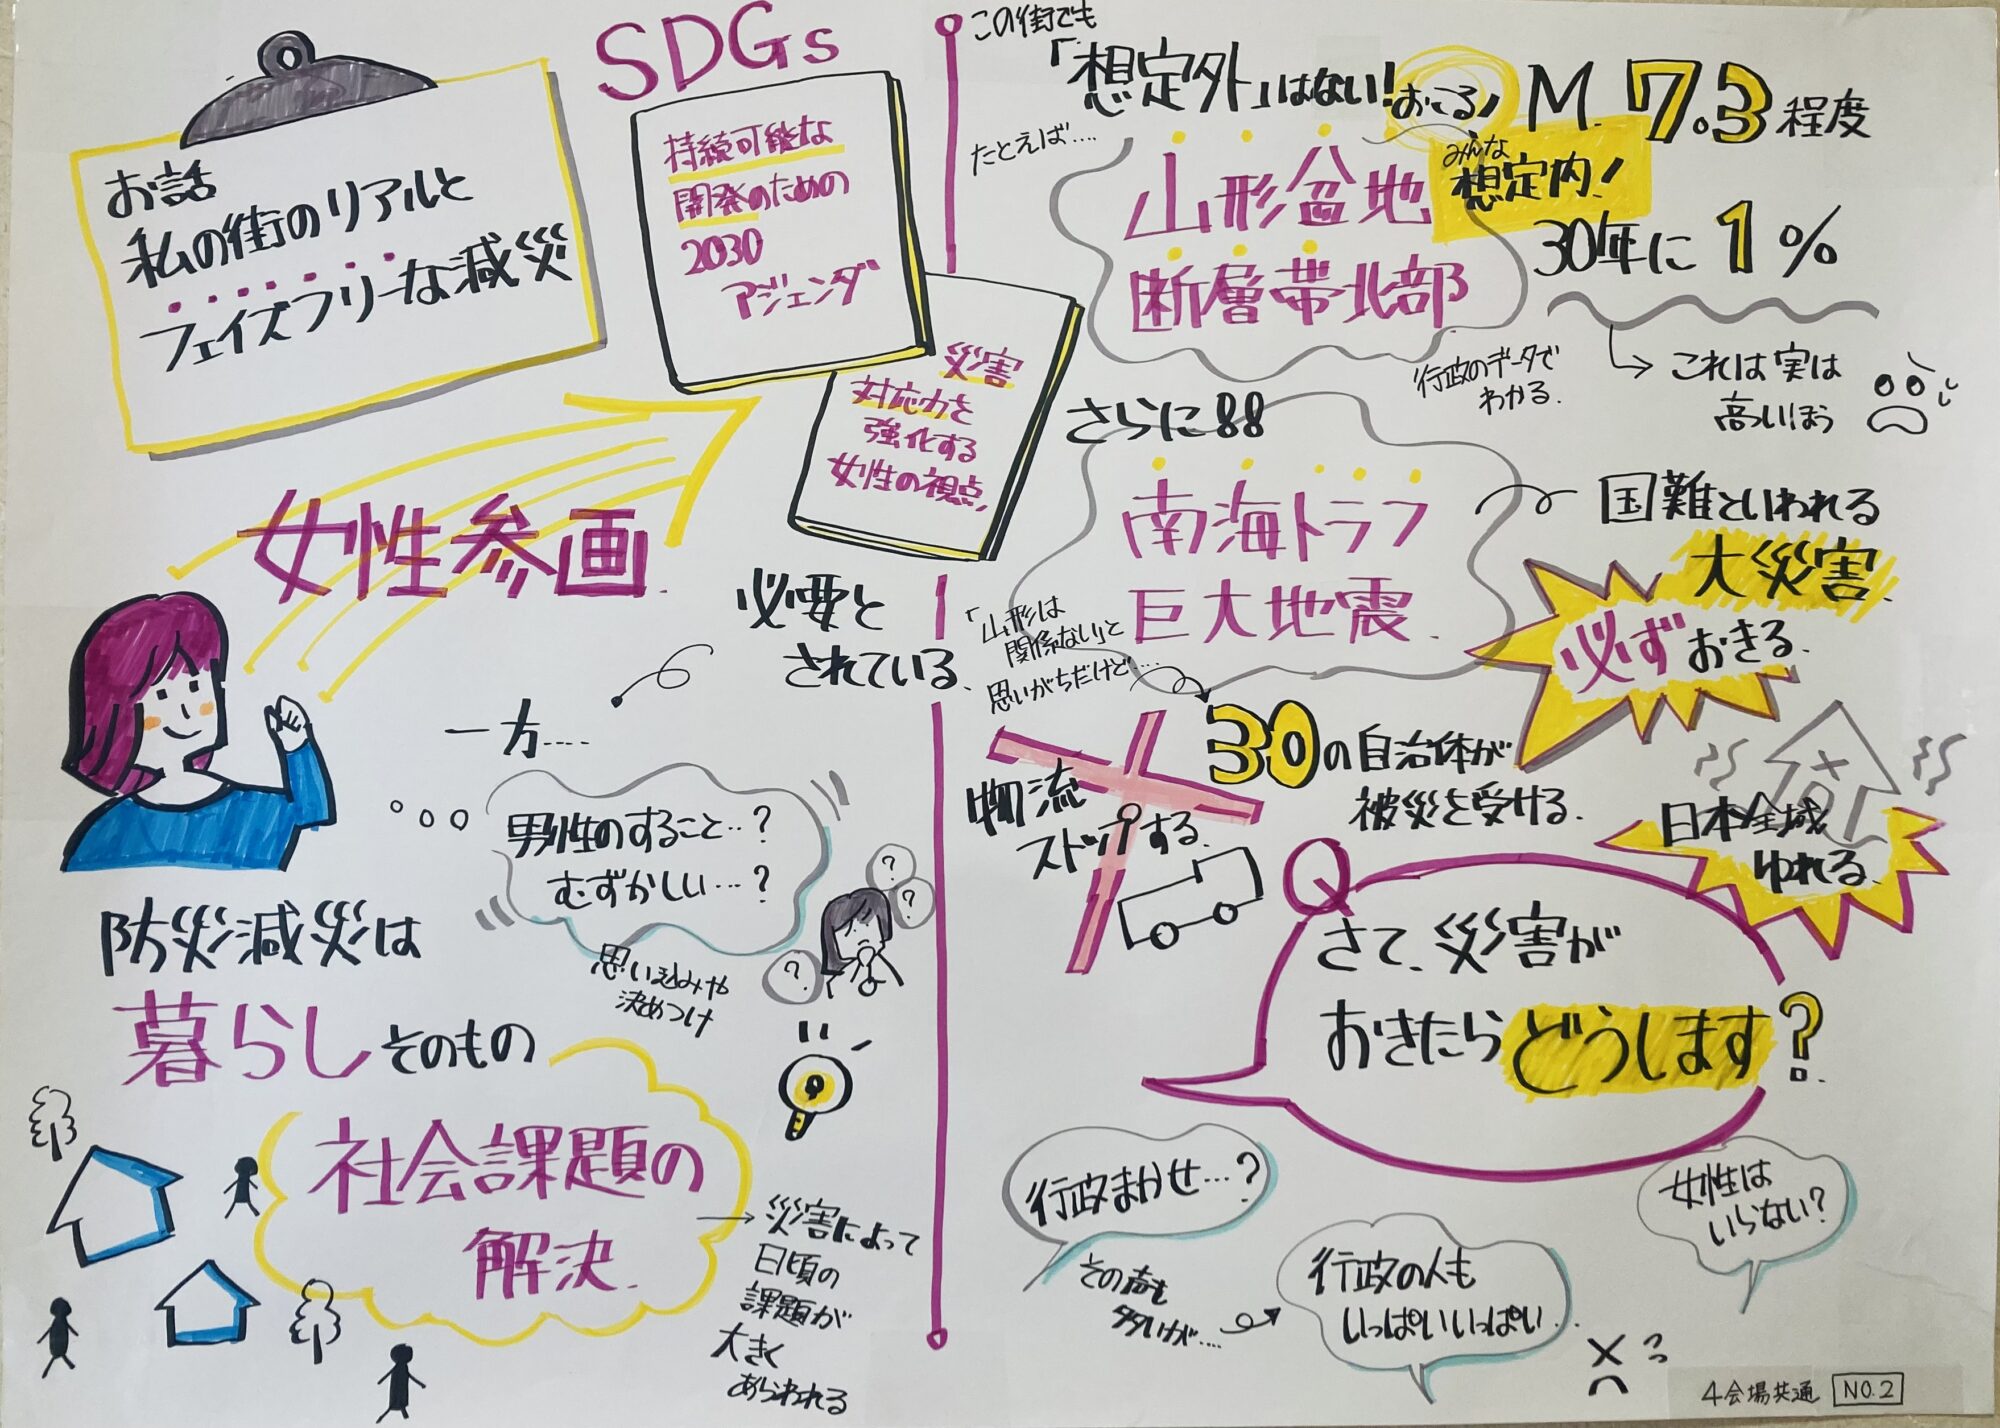 お話
私の街のリアルと
フェイズフリーな減災
SDGs
持続可能な
開発のための
2030
アジェンダ
災害
対応力を
強化する
女性の視点
女性参画
必要と
されている。
一方....
男性のすること..?
むずかしい...?
思い込みや
決めつけ
防災減災は
暮らしそのもの
社会課題の
解決.
災害によって
日頃の
課題が
大きく
あらわれる
この街でも
「想定外」はない!おこる!
たとえば....
山形盆地
断層帯北部
M.7.3程度
みんな
想定内!
30年に1%
行政のデータで
わかる.
これは実は
高いほう
さらに
南海トラフ
巨大地震.
国難といわれる
大災害.
必ずおきる.
「山形は
関係ない」と
思いがちだけど....
30の自治体が
被災を受ける.
物流
ストップする.
日本全域
ゆれる.
Q
さて、災害が
おきたらどうします?
行政まかせ...?
その声も
多いが....
行政の人も
いっぱいいっぱい...
女性は
いらない?
4会場共通 NO.2